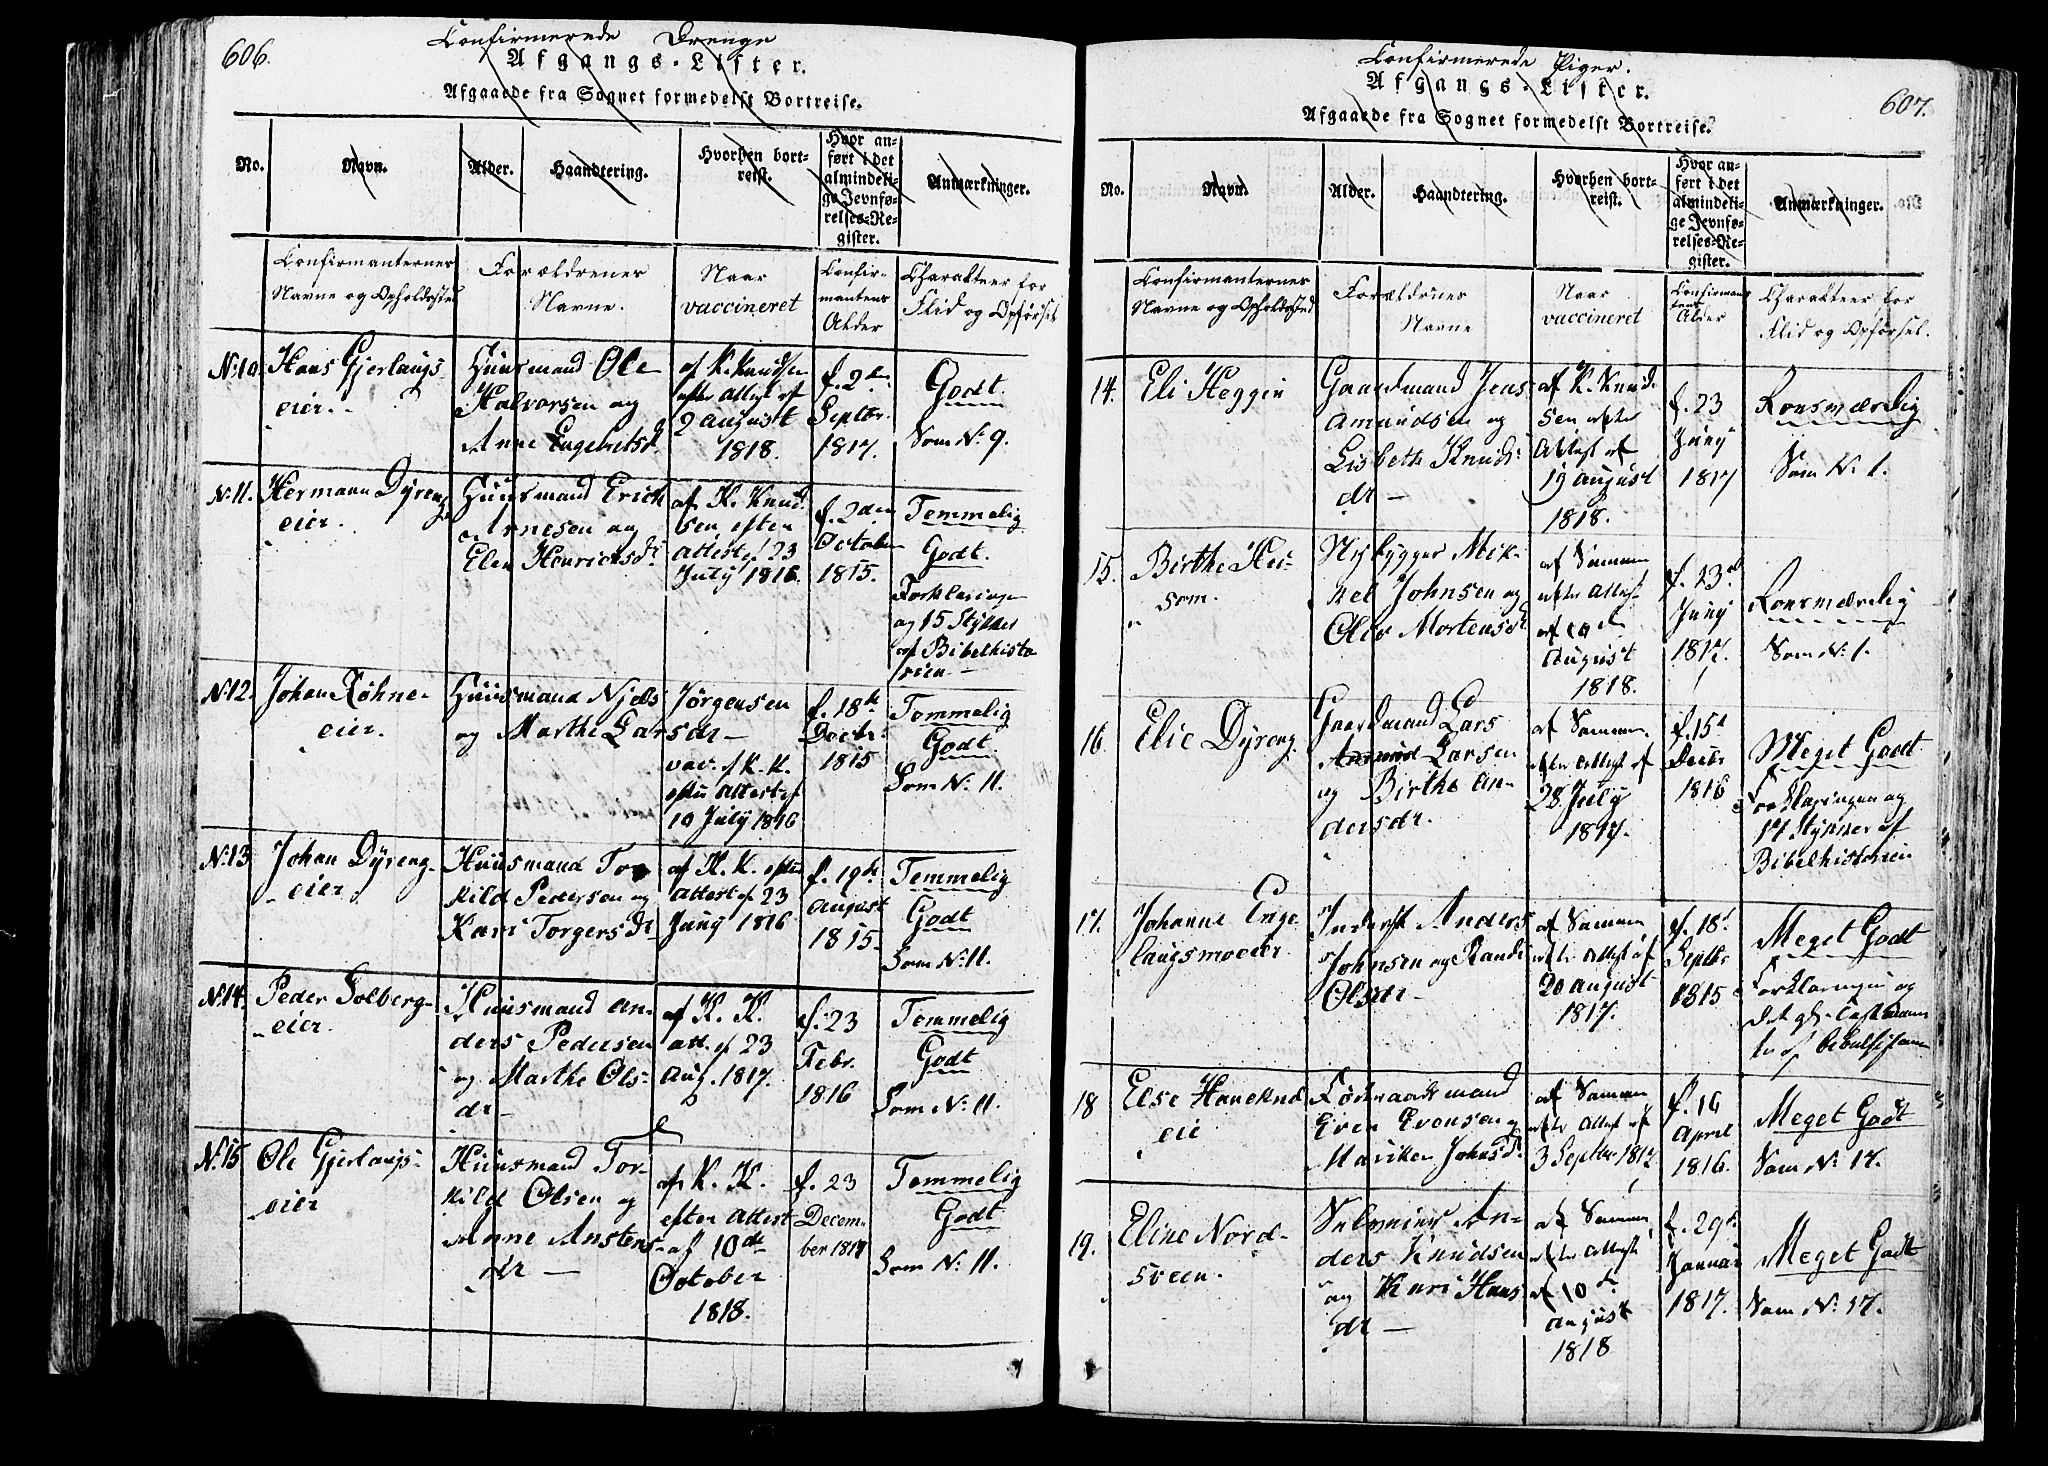 606.
Confirmerede Drenge
Afgangs-Lister.
Afgaaede fra Sognet formedelst Bortreise.
No.
Navn.
Alder.
Haandtering.
Hvorhen bort-
reist.
Hvor an-
ført i det
almindeli-
ge Jevnfø-
relses-Re-
gister.
Anmærkninger.
Confirmanternes
Navne og Opholdssted
Forældrenes
Navne.
Naar
vaccineret
Confir-
mantens
Alder
Charakteer for
Flid og Opförsel
No. 10.
Hans Gjerlaugs
eier.
Huusmand Ole
Halvorsen og
Anne Engebretsd.
af K. Knudsen
efter Attest af
2 August
1818.
f. 2den
Septbr.
1817.
Godt.
Som No. 9.
No. 11.
Hermann Dÿreng
eier.
Huusmand Erick
Arnesen og
Elen Henrichsdr.
af K. Knud-
sen efter
Attest af 23
July 1816.
f. 2den
October
1815.
Temmelig
Godt.
Forklaringen
og 15 Stykker
af Bibelhisto-
rien -
No. 12.
Johan Röhne-
eier.
Huusmand Njels Jörgensen
og Marthe Larsdr -
vac. af K. K.
efter Attest af
10 July 1816
f. 18de
Decbr.
1815
Temmelig
Godt.
Som No. 11.
No. 13
Johan Dÿreng-
eier.
Huusmand Tor
kild Pedersen og
Kari Torgersdr
af K. K. efter
Attest af 23
Juny 1816
f. 19de
August
1815.
Temmelig
Godt
Som No. 11.
No. 14.
Peder Solberg-
eier.
Huusmand An-
ders Pedersen
og Marthe Ols-
dr -
af K. K.
att. af 23
Aug. 1817.
f. 23
Febr.
1816
Temmelig
Godt
Som No. 11.
No. 15
Ole Gjerlaugs-
eier
Huusmand Tor-
kild Olsen og
Anne Anstens-
dr -
af K. K.
efter Attest
af 10de
October
1818.
f. 23
Decem-
ber 1817
Temmelig
Godt
Som No. 11.
607.
Confirmerede Piger.
Afgangs-Lister.
Afgaaede fra Sognet formedelst Bortreise.
No.
Navn.
Alder.
Haandtering.
Hvorhen bort-
reist.
Hvor an-
ført i det
almindeli-
ge Jevnfø-
relses-Re-
gister.
Anmærkninger.
Confirmanternes
Navne og Opholdssted
Forældrenes
Navne
Naar
vaccineret
Confirman-
tens
Alder
Charakteer for
Flid og Opförsel.
14.
Eli Heggen
Gaardmand Jens
Amundsen og
Lisbeth Knuds-
dr -
af K. Knud-
sen efter
Attest af
19 August
1818.
f. 23
Juny
1817
Roesværdig
Som No. 1.
15.
Birthe
som.
Nybygger Mik-
kel Johnsen og
Olia Mortensdr
af Samme
efter Attest
af 10de
August
1818.
f. 23de
Juny
1817.
Roesværdig
Som No. 1.
16.
Elie Dÿreng.
Gaardmand Lars
Larsen
og Birthe An-
dersdr.
af Samme
efter Attest af
28 July
1817.
f. 15de
Decbr
1816
Meget Godt
Forklaringen og
17 Stykker af
Bibelhistorien
17.
Johanne Enge
laugsmoeier
Inderst Anders
Johnsen og Randi
Olsdr -
af Samme
efter Attest af
20 August
1817.
f. 18de
Septbr
1815
Meget Godt
Forklaringen og
18
Else Haneknd
eie
Föderaadsmand
Even Evensen og
Mariken Johnsdr
af Samme
efter Attest af
3 Septbr 1817
f. 16
April
1816.
Meget Godt
Som No. 17.
19.
Eline Nord-
sveen.
Selveier An-
ders Knudsen
og Kari Hans
dr -
af Samme
efter Attest
af 10de
August
1818
f. 29de
Januar
1817.
Meget Godt
Som No. 17.